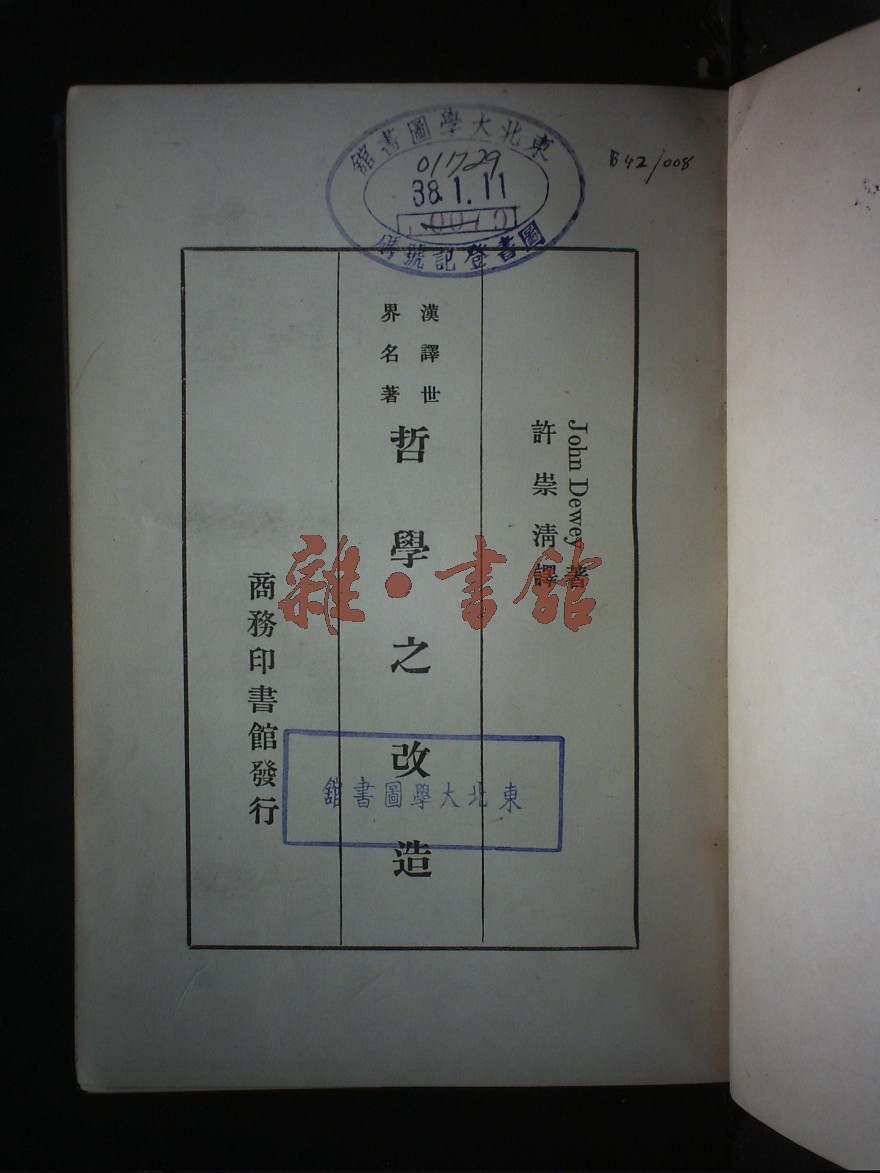 東北大學圖書館
01729
38.1.11
圖書登記號碼
B42/008
John Dewey 著
許崇清譯
漢譯世
界名著
哲學之改造
商務印書館發行
雜·書館
東北大學圖書館